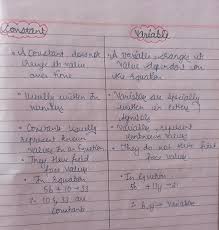 Constant
Variable
• A Constant does not
change its value
over time
• A variable changes its
value dependent on
the equation
• Usually written in
numbers
• Variables are specially
written in letters
symbols
• Constants usually
represent known
values in an equation
• Variables represent
unknown values
• They have fixed
face value
• They do not have fixed
face value
• In Equation
5b + 10 = 33
• In Equation